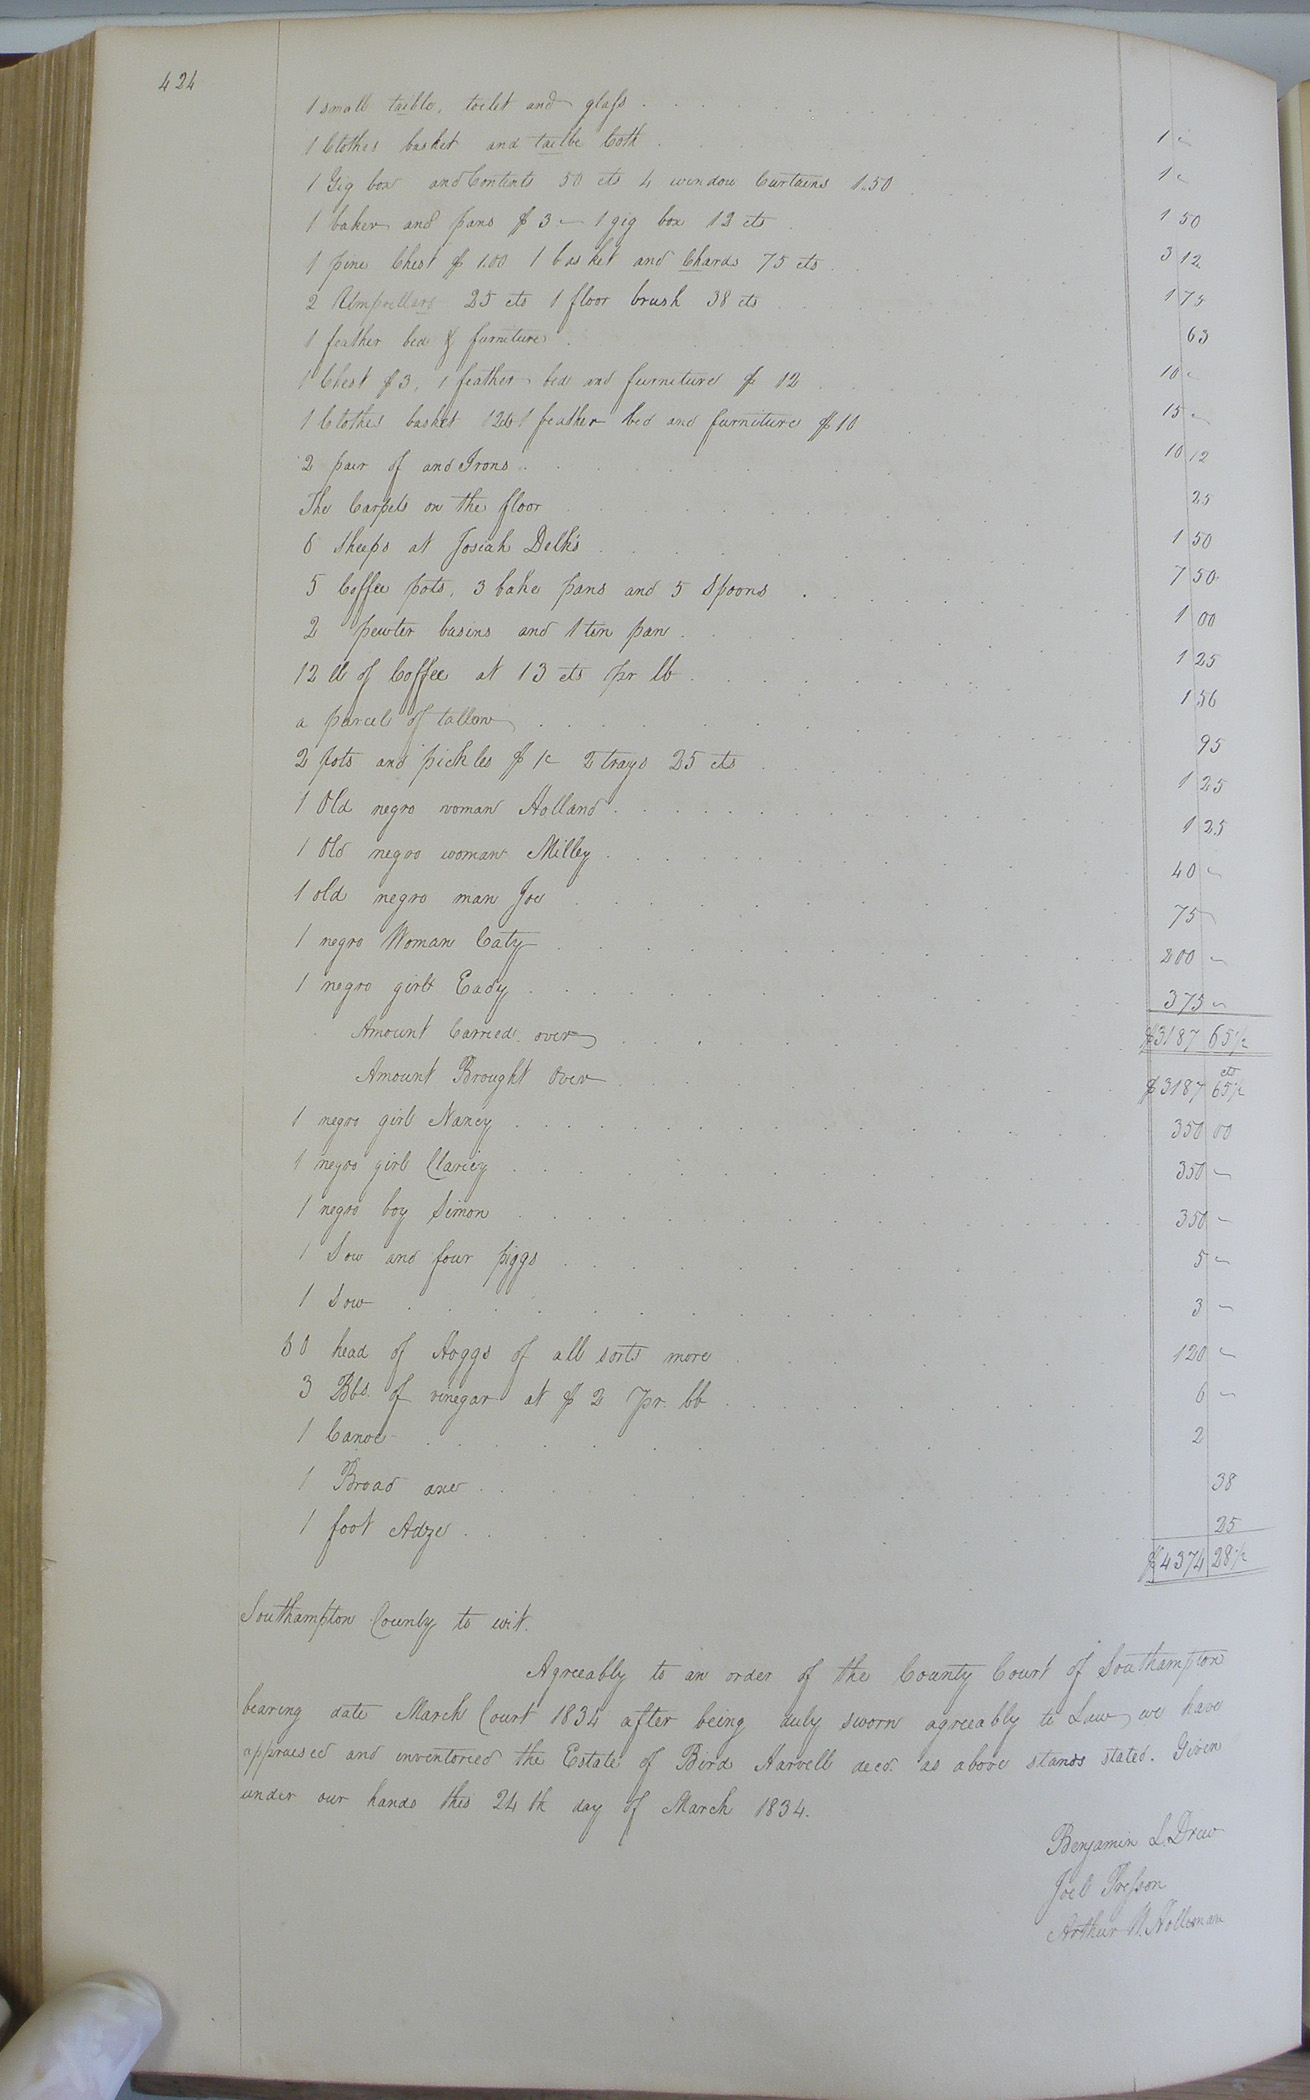 424
1 small taible, toilet and glass 1 -
1 Clothes basket and tailbe Coth 1 -
1 Gig box and Contents 50 cts 4 window Curtains 1.50 1 50
1 baker and pans $ 3 - 1 gig box 12 cts 3 12
1 pine Chest $ 1.00 1 basket and Chards 75 cts 1 75
2 25 cts 1 floor brush 38 cts 63
1 feather bed & furniture 10 -
1 Chest $3, 1 feather bed and furniture $ 12 15 -
1 Clothes basket 12cts 1 feather bed and furniture $10 10 12
2 pair of and Irons 25
The Carpets on the floor 1 50
6 Sheeps at Josiah Delk's 7 50
5 Coffee pots, 3 bake pans and 5 Spoons 1 00
2 pewter basins and 1 tin pan 1 25
12 lb of Coffee at 13 cts pr lb 1 56
a parcel of tallow 95
2 pots and pickles $ 1 - 2 trays 25 cts 1 25
1 Old negro woman Holland 1 25
1 Old negro woman Milley 40 -
1 old negro man Joe 75 -
1 negro Woman Caty 200 -
1 negro girl Eady 375 -
Amount Carried over $3187 65 1/2
Amount Brought Over $3187 65 1/2 cts
1 negro girl Nancy 350 00
1 negro girl Claricy 350 -
1 negro boy Simon 350 -
1 Sow and four piggs 5 -
1 Sow 3 -
60 head of Hoggs of all sorts more 120 -
3 Bbs. of vinegar at $ 2 pr. bb 6 -
1 Canoe 2
1 Broad axe 38
1 foot Adze 25
$4374 28 1/2
Southampton County to wit.
Agreeably to an order of the County Court of Southampton
bearing date March Court 1834 after being duly sworn agreeably to Law, we have
appraised and inventoried the Estate of Bird Harvell decd. as above stands stated. Given
under our hands this 24th day of March 1834.
Benjamin L. Drew
Joel Presson
Arthur W. Holleman